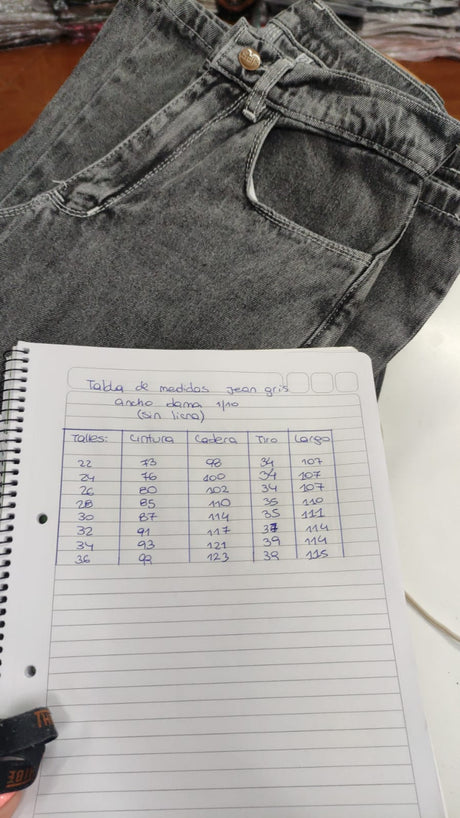 Tabla de medidas Jean gris
ancho dama 1/10
(sin licra)
Talles: Cintura Cadera Tiro Largo
22 73 98 34 107
24 76 100 34 107
26 80 102 34 107
28 85 110 35 110
30 87 114 35 111
32 91 117 37 114
34 93 121 39 114
36 123 39 115